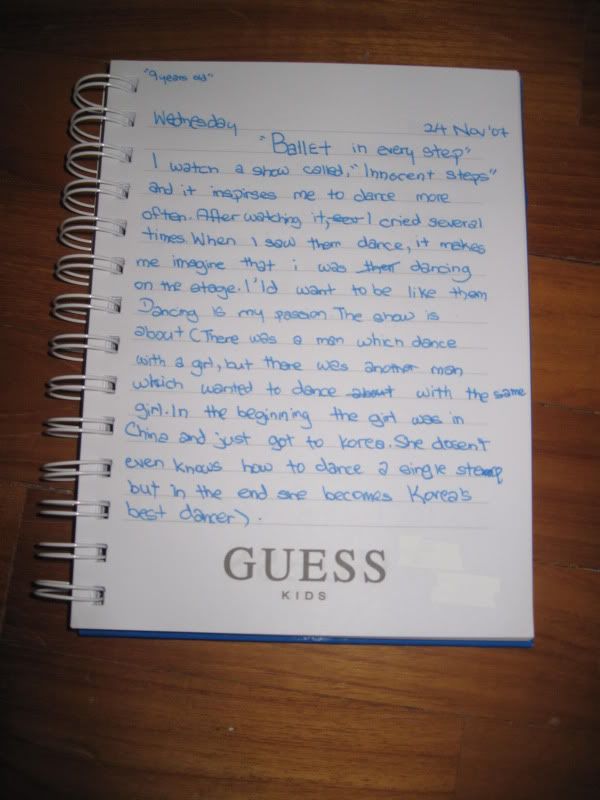 "9 years old"
Wednesday 24 Nov'07
"Ballet in every step"
I watch a show called, "Innocent steps"
and it inspirses me to dance more
often. After watching it, I cried several
times. When I saw them dance, it makes
me imagine that i was dancing
on the stage. I'ld want to be like them
Dancing is my passion The show is
about (There was a man which dance
with a girl, but there was another man
which wanted to dance about with the same
girl. In the beginning the girl was in
China and just got to Korea. She dosen't
even knows how to dance a single step
but in the end she becomes Korea's
best dancer).
GUESS
KIDS